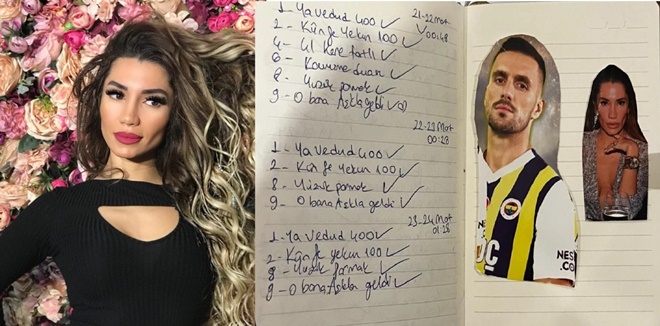 21-22 Mart
00:48
1 - Ya Vedud 400 ✓
2 - Kün fe Yekun 100 ✓
6 - Kavuşma duası ✓
8 - Yüzük parmak ✓
9 - O bana Aşkla geldi ✓
22-23 Mart
00:28
1 - Ya Vedud 400 ✓
2 - Kün fe Yekun 100 ✓
8 - Yüzük parmak ✓
9 - O bana Aşkla geldi ✓
23-24 Mart
01:28
1 - Ya Vedud 400 ✓
2 - Kün fe yekun 100 ✓
8 - Yüzük parmak ✓
9 - O bana Aşkla geldi ✓
NES
.CO